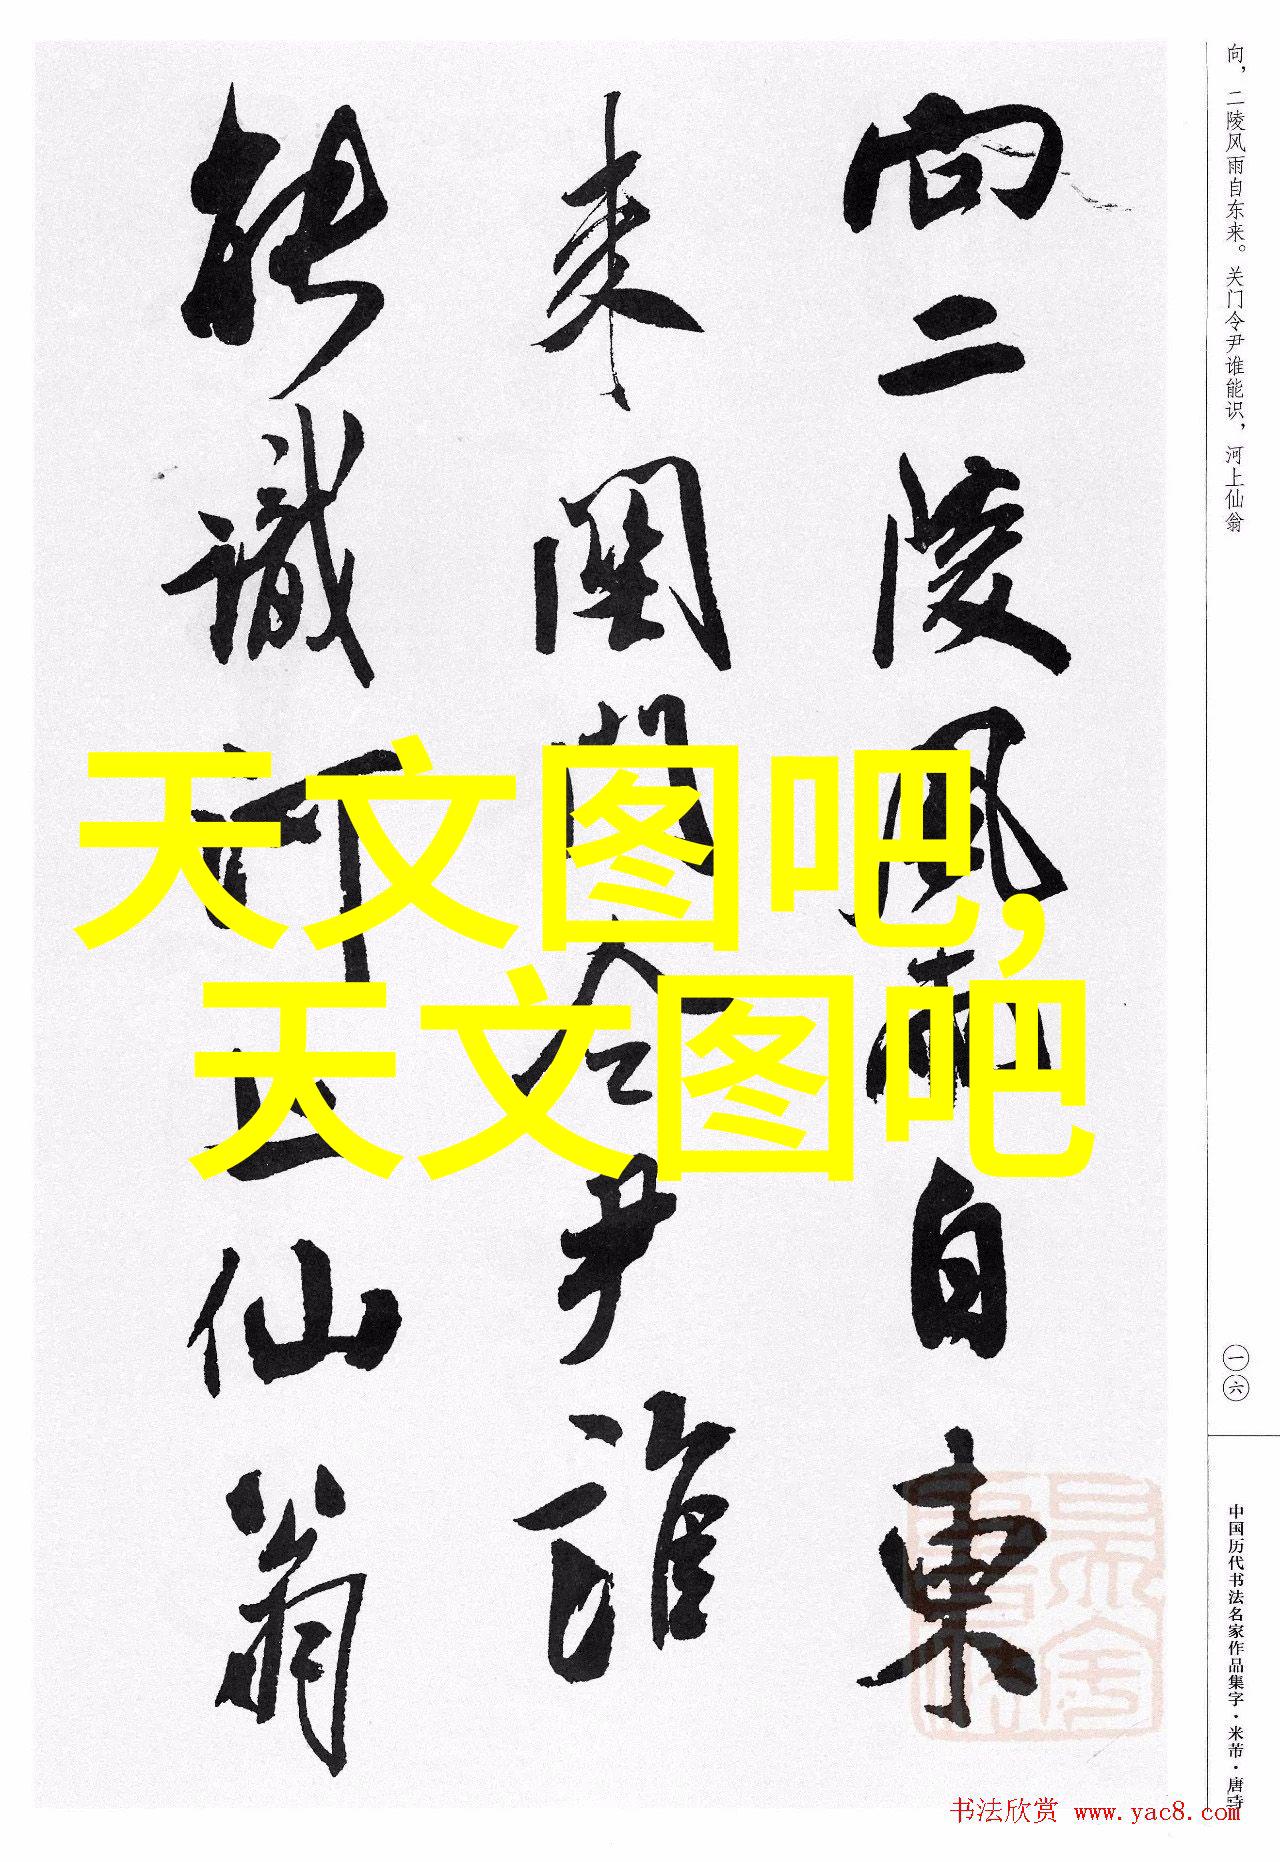 向二陵風雨自東
来關門令尹誰
能識河上仙翁
天文图吧,
天文图吧
向，二陵风雨自东来。关门令尹谁能识，河上仙翁
一六
中国历代书法名家作品集字·米芾·唐诗
书法欣赏 www.yac8.com